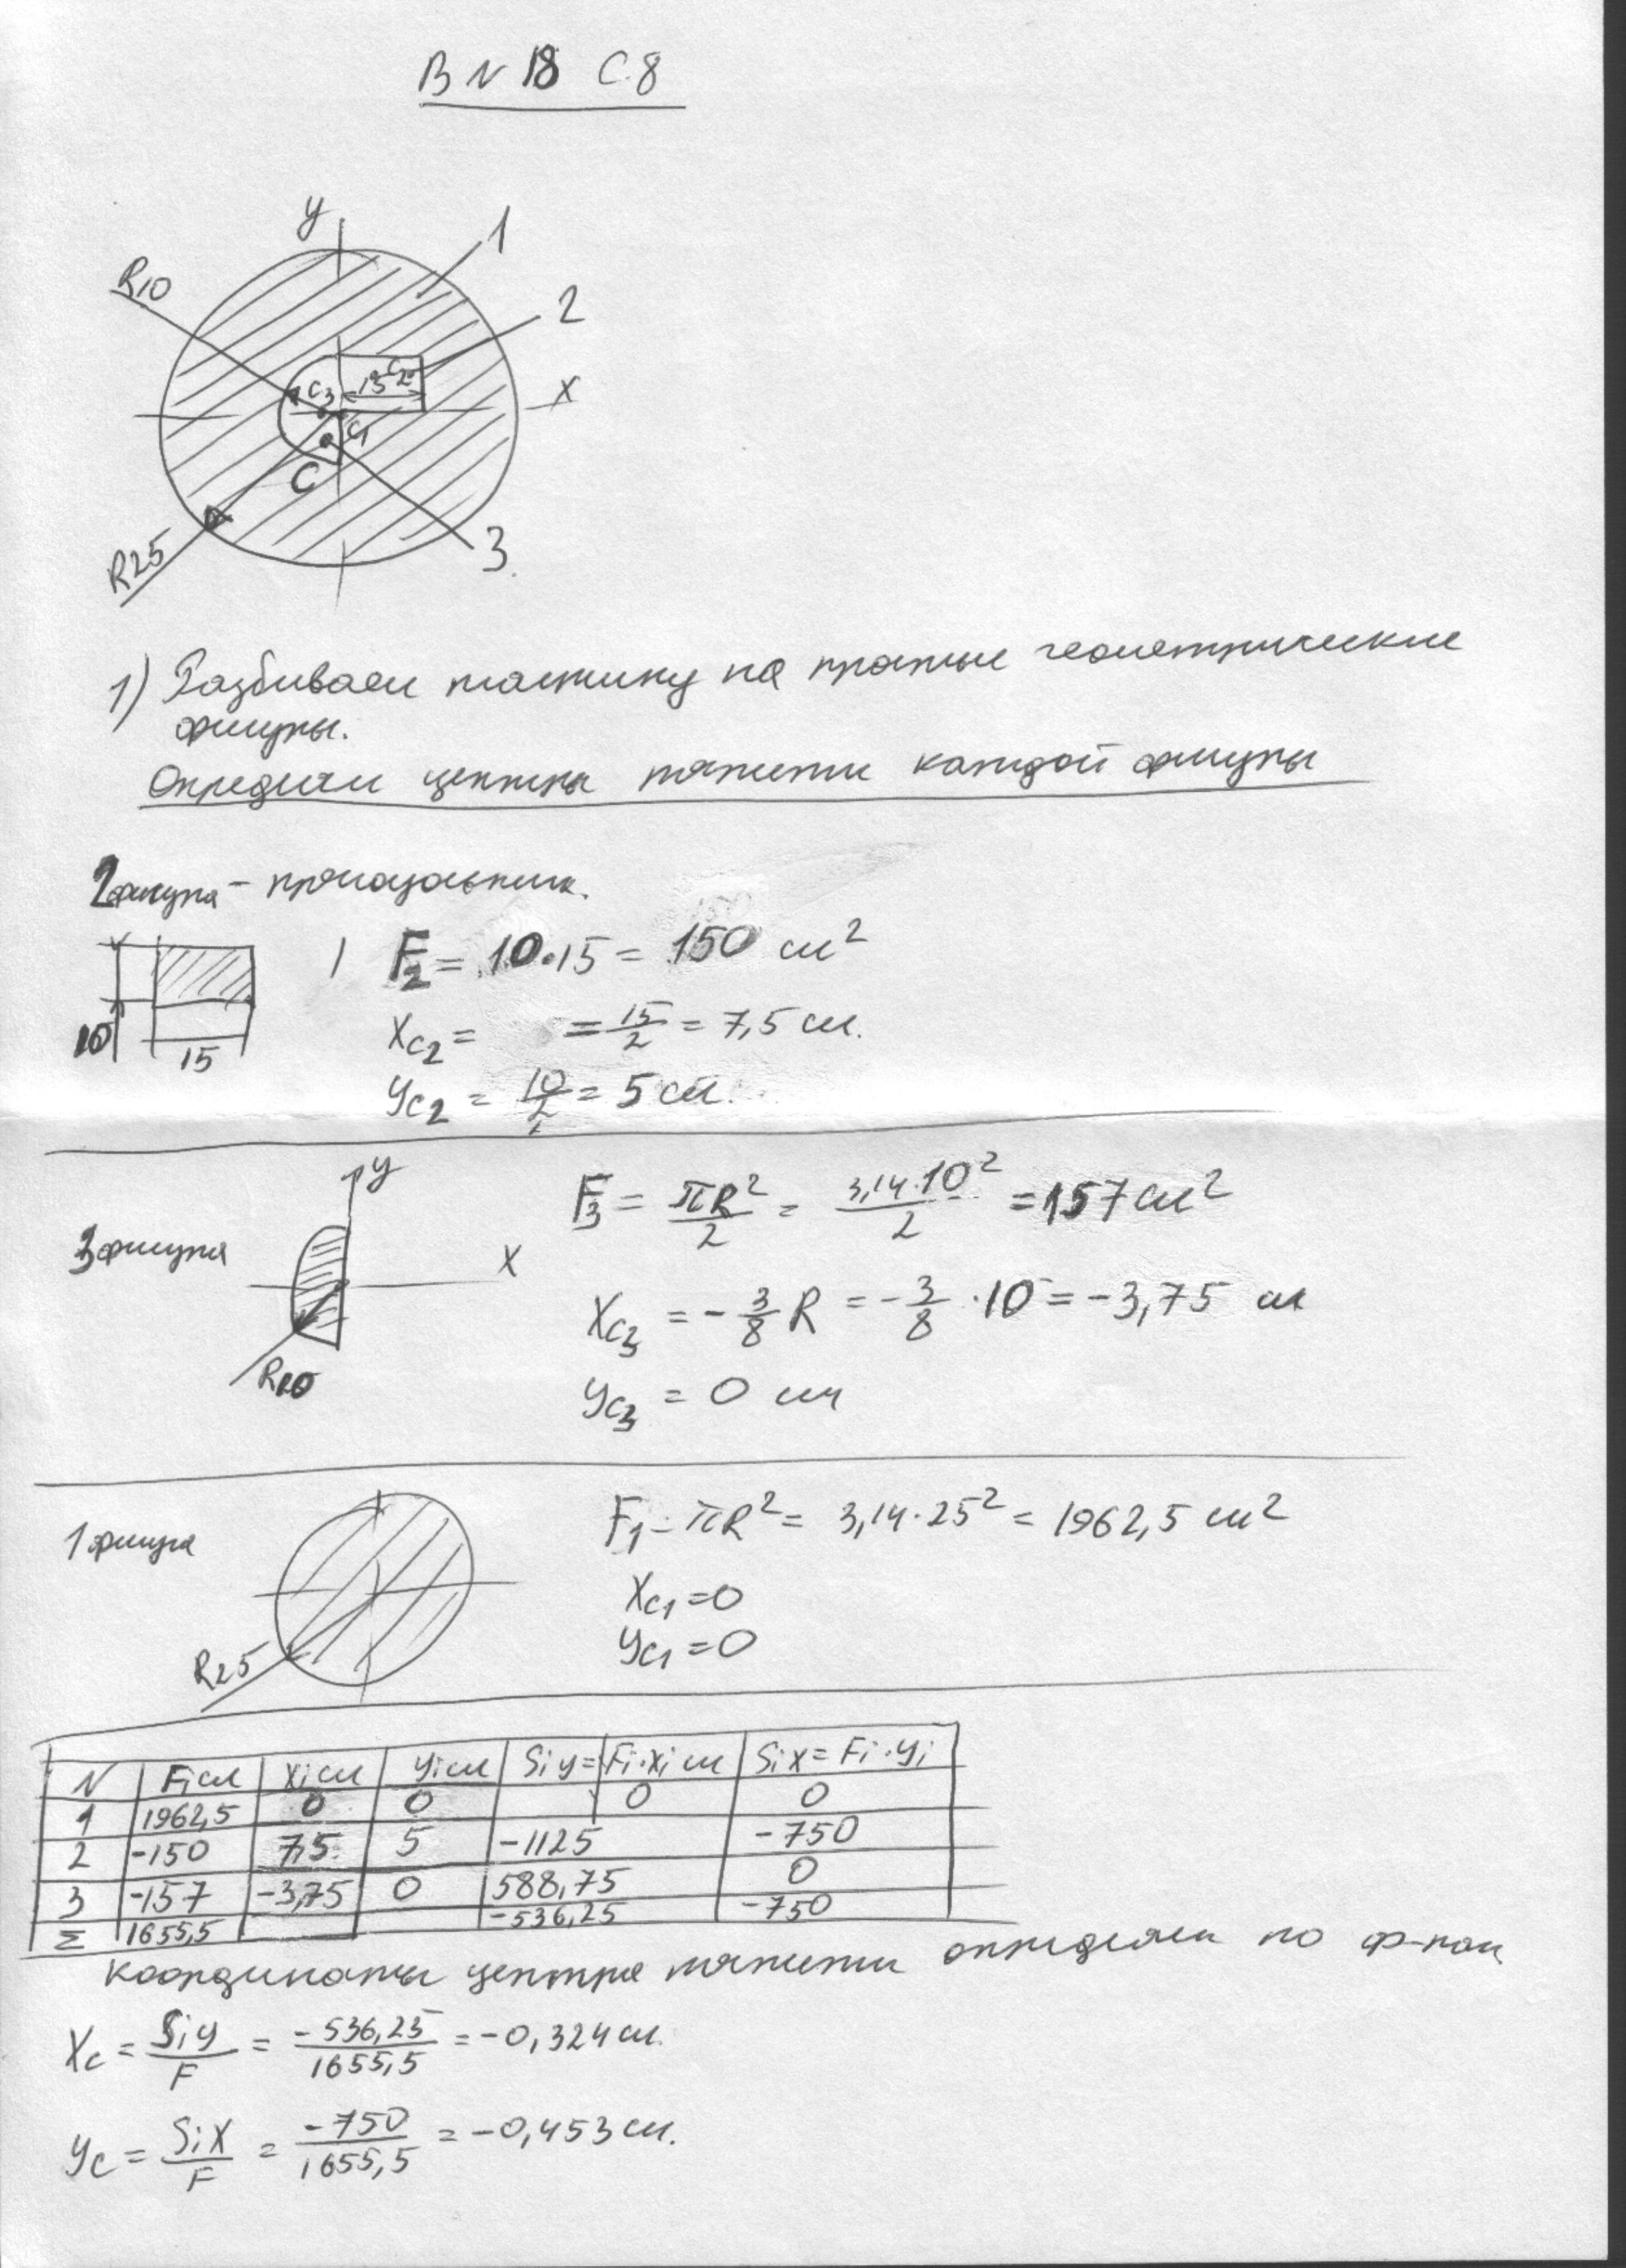 В N 18 С.8
y
1
R10
2
C2
15
x
C3
C1
C
R25
3
1) Разбиваем пластину на простые геометрические
фигуры.
Определим центры тяжести каждой фигуры
2 фигура - прямоугольник.
F₂ = 10·15 = 150 см²
10
15
Xc₂ = = 15/2 = 7,5 см.
Yc₂ = 10/2 = 5 см.
y
F₃ = πR²/2 = 3,14·10²/2 = 157 см²
3 фигура
x
Xc₃ = -3/8 R = -3/8 ·10 = -3,75 см
R10
Yc₃ = 0 см
1 фигура
F₁ = πR² = 3,14·25² = 1962,5 см²
Xc₁ = 0
Yc₁ = 0
R25
N Fi см Xi см Yi см Siy = Fi·xi см Six = Fi·yi
1 1962,5 0 0 0 0
2 -150 7,5 5 -1125 -750
3 -157 -3,75 0 588,75 0
Σ 1655,5 -536,25 -750
координаты центра тяжести определяем по ф-лам
Xc = Siy/F = -536,25/1655,5 = -0,324 см.
Yc = Six/F = -750/1655,5 = -0,453 см.